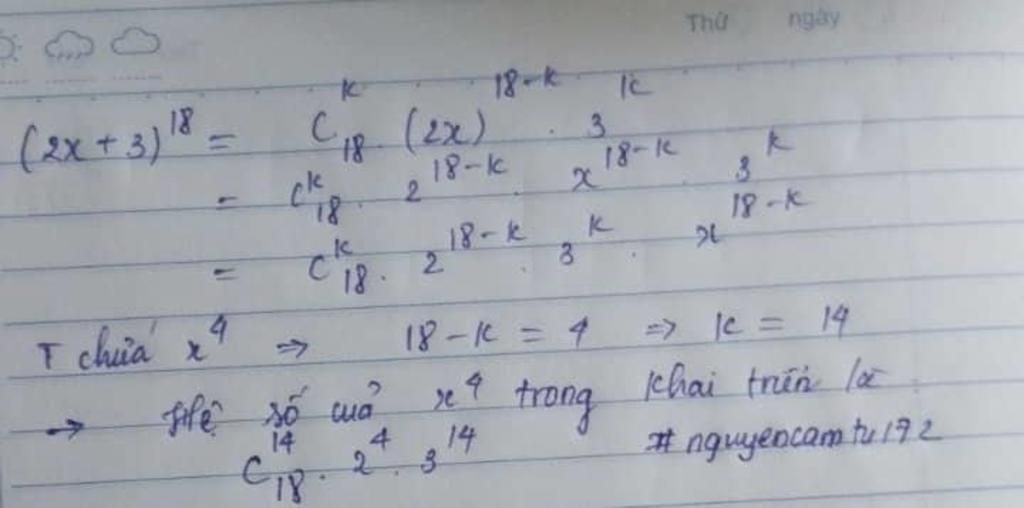 Thứ ngày
(2x + 3)^18 = C_18^k . (2x)^18-k . 3^k
= C_18^k . 2^18-k . x^18-k . 3^k
= C_18^k . 2^18-k . 3^k . x^18-k
T chứa x^4 ⇒ 18 - k = 4 ⇒ k = 14
→ Hệ số cuả x^4 trong khai triển là
C_18^14 . 2^4 . 3^14 #nguyencamtu192